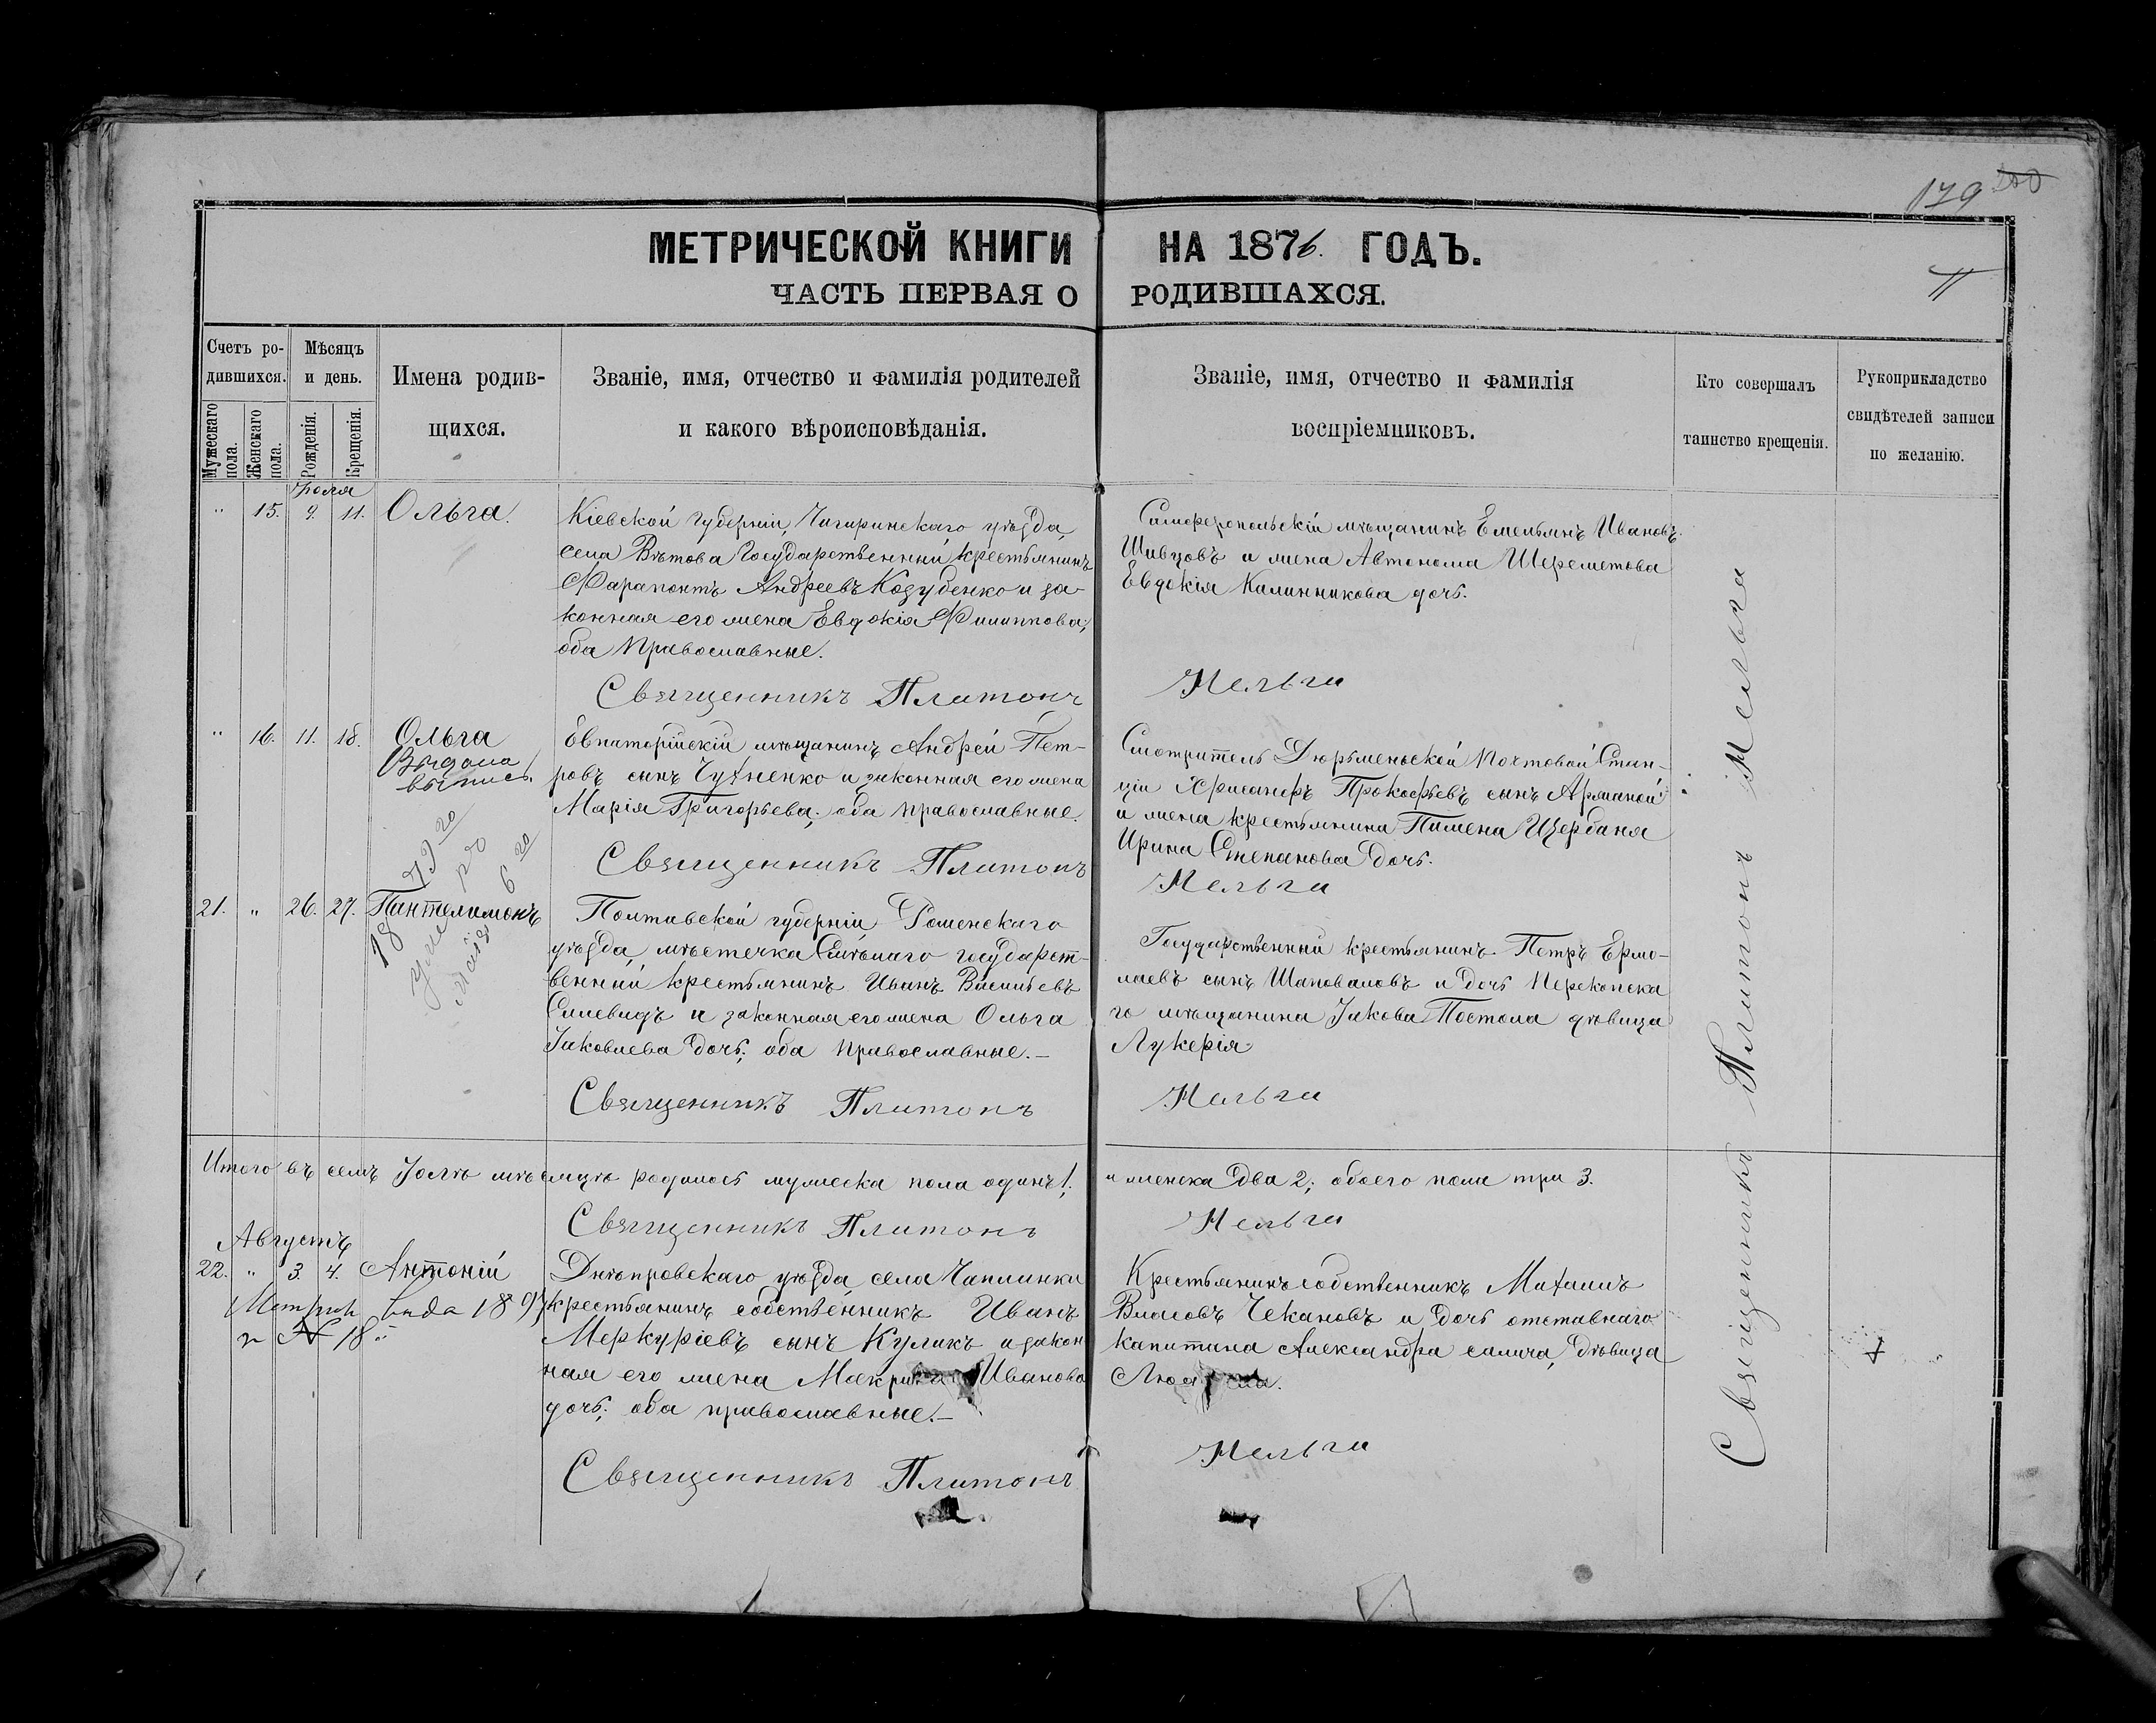 179 200
МЕТРИЧЕСКОЙ КНИГИ НА 1876. ГОДЪ.
ЧАСТЬ ПЕРВАЯ О РОДИВШАХСЯ.
Счетъ ро-
дившихся.
Мужескаго пола.
Женскаго пола.
Мѣсяцъ
и день.
Рожденія.
Крещенія.
Имена родив-
щихся.
Званіе, имя, отчество и фамилія родителей
и какого вѣроисповѣданія.
Званіе, имя, отчество и фамилія
воспріемниковъ.
Кто совершалъ
таинство крещенія.
Рукоприкладство
свидѣтелей записи
по желанію.
" 15. 9. 11. Ольга.
Кіевской губерніи, Чигиринскаго уѣзда,
села Вѣтова Государственный крестьянинъ
Фарапонтъ Андреевъ Козубенко и за-
конная его жена Евдокія Филиппова;
оба Православные.
Священникъ Платонъ
Симферопольскій мѣщанинъ Емельянъ Ивановъ
Шивцовъ и жена Автонома Шереметова
Евдокія Калинникова дочь.
Мельга
" 16. 11. 18. Ольга
Выдана
выпись
Евпаторійскій мѣщанинъ Андрей Пет-
ровъ сынъ Чухненко и законная его жена
Марія Григорьева; оба православные.
Священникъ Платонъ
Смотритель Дюрьменьской Почтовой Стан-
ціи Хрисанфъ Прокофьевъ сынъ
и жена крестьянина Пимена Щербаня
Ирина Степанова дочь.
Мельга
21. " 26. 27. Пантелимонъ
Полтавской губерніи Роменскаго
уѣзда, мѣстечка Смѣлаго государст-
венный крестьянинъ Иванъ Васильевъ
и законная его жена Ольга
Іаковлева дочь; оба православные.—
Священникъ Платонъ
Государственный крестьянинъ Петръ Ермо-
лаевъ сынъ Шаповаловъ и дочь Перекопска
го мѣщанина Іакова Постола дѣвица
Лукерія
Мельга
Итого въ семъ Іюлѣ мѣсяцѣ родилось мужеска пола одинъ 1; и женска два 2; обоего пола три 3.
Священникъ Платонъ Мельга
Августъ
22. " 3. 4. Антоній
Днѣпровскаго уѣзда села Чаплинки
крестьянинъ собственникъ Иванъ
Меркуріевъ сынъ Куликъ и закон
ная его жена Макрина Иванова
дочь; оба православные.—
Священникъ Платонъ
Крестьянинъ собственникъ Михаилъ
Власовъ Чекановъ и дочь отставнаго
капитана Александра дѣвица
Мельга
Священникъ Платонъ Мельга